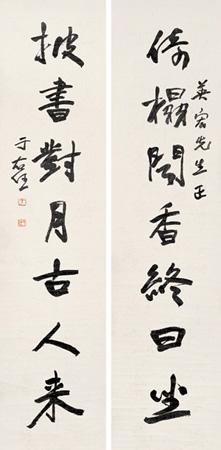 英宏先生正
倚櫂聞香終日坐
披書對月古人來
于右任